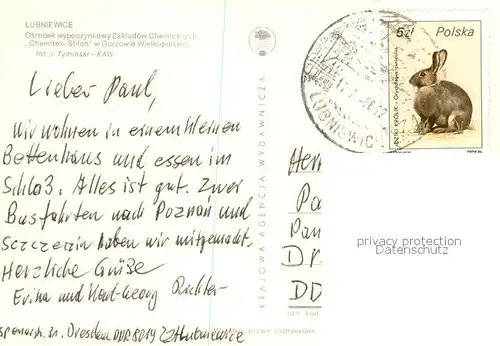 LUBNIEWICE
Ośrodek wypoczynkowy Zakładów Chemicznych
„Chemitex-Stilon" w Gorzowie Wielkopolskim
fot. J. Tymiński — KAW
5zł Polska
DZIKI KRÓLIK - Oryctolagus cuniculus
LUBNIEWIC
Lieber Paul,
Wir wohnen in einem kleinen
Bettenhaus und essen im
Schloß. Alles ist gut. Zwei
Busfahrten nach Poznań und
Szczecin haben wir mitgemacht.
Herzliche Grüße
Erika und Horst-Georg Richter
Dresden DDR 8019 Lubniewice
KRAJOWA AGENCJA WYDAWNICZA
Herr
Pa
Pau
Dr
DD
privacy protection
Datenschutz
prawa zastrzeżone